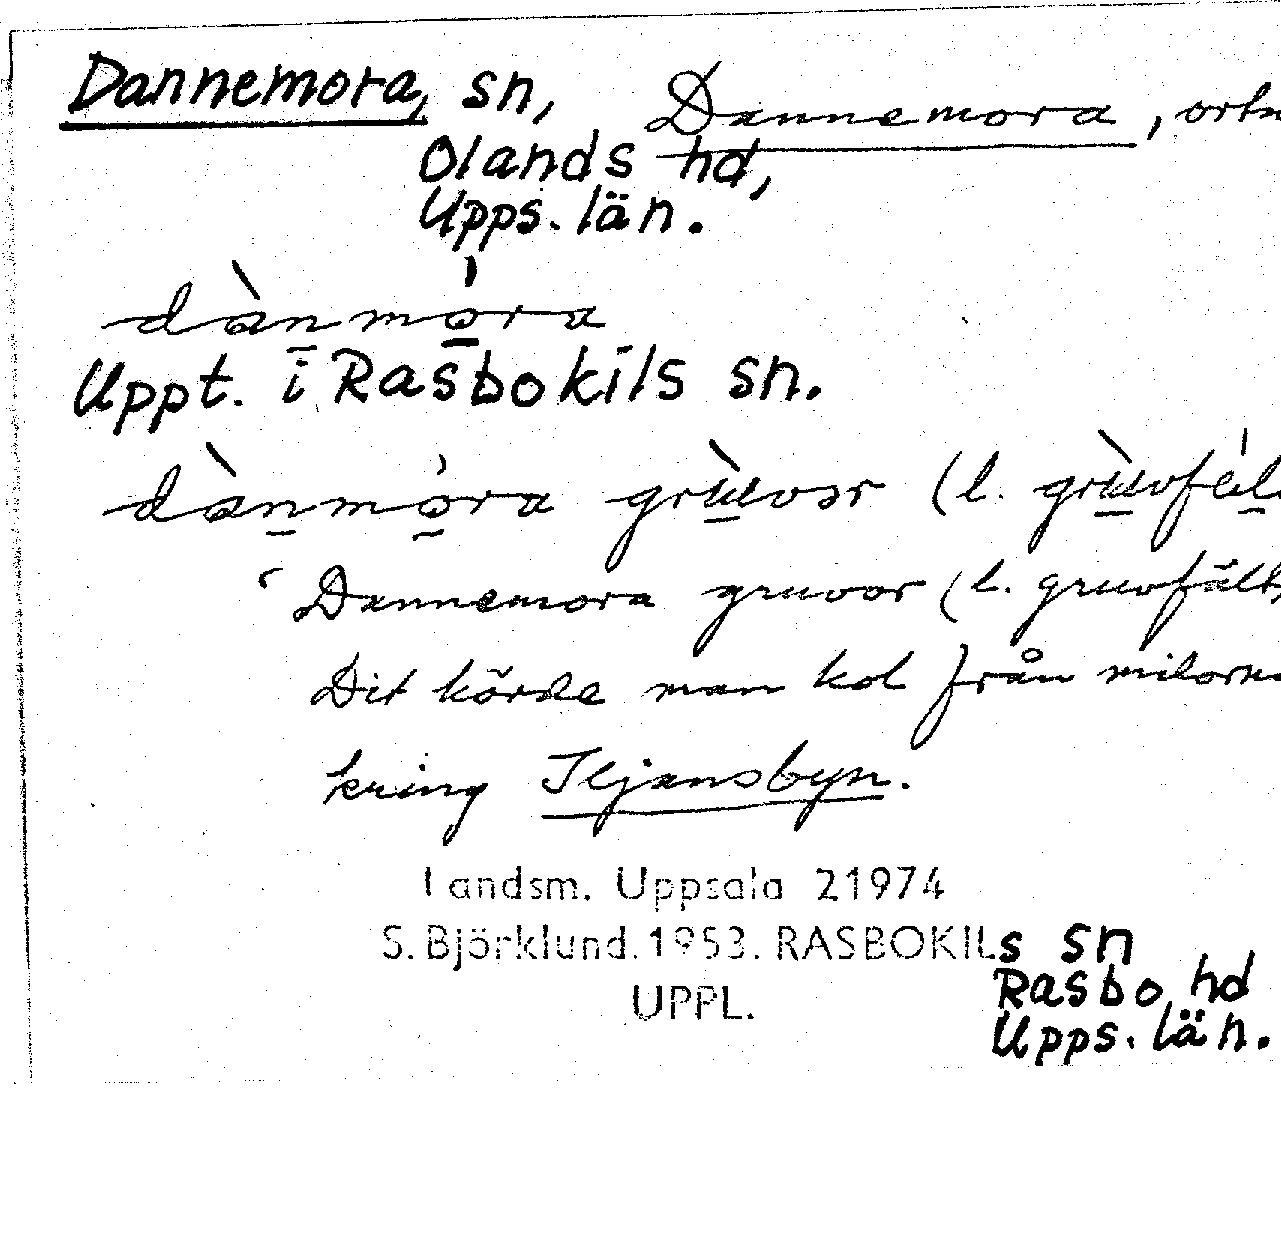 Dannemora, sn, Dannemora, ortn
Olands hd,
Upps. län.
dànmóra
Uppt. i Rasbokils sn.
dànmóra grùvor (l. grùvfél
'Dannemora gruvor (l. gruvfält,
Dit körde man kol från milorna
kring Iljansbyn.
Landsm. Uppsala 21974
S. Björklund. 1953. RASBOKILs sn
Rasbo hd
UPPL.
Upps. län.